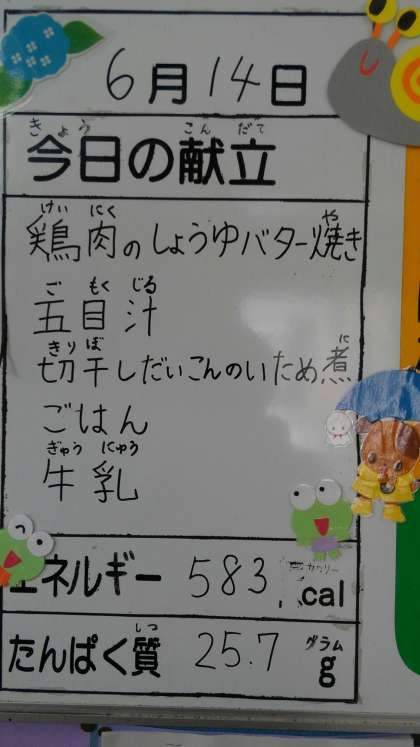 6月14日
きょう こんだて
今日の献立
けいにく や
鶏肉のしょうゆバター焼き
ごもくじる
五目汁
きりぼ に
切干しだいこんのいため煮
ごはん
ぎゅうにゅう
牛乳
エネルギー 583 cal
しつ グラム
たんぱく質 25.7 g